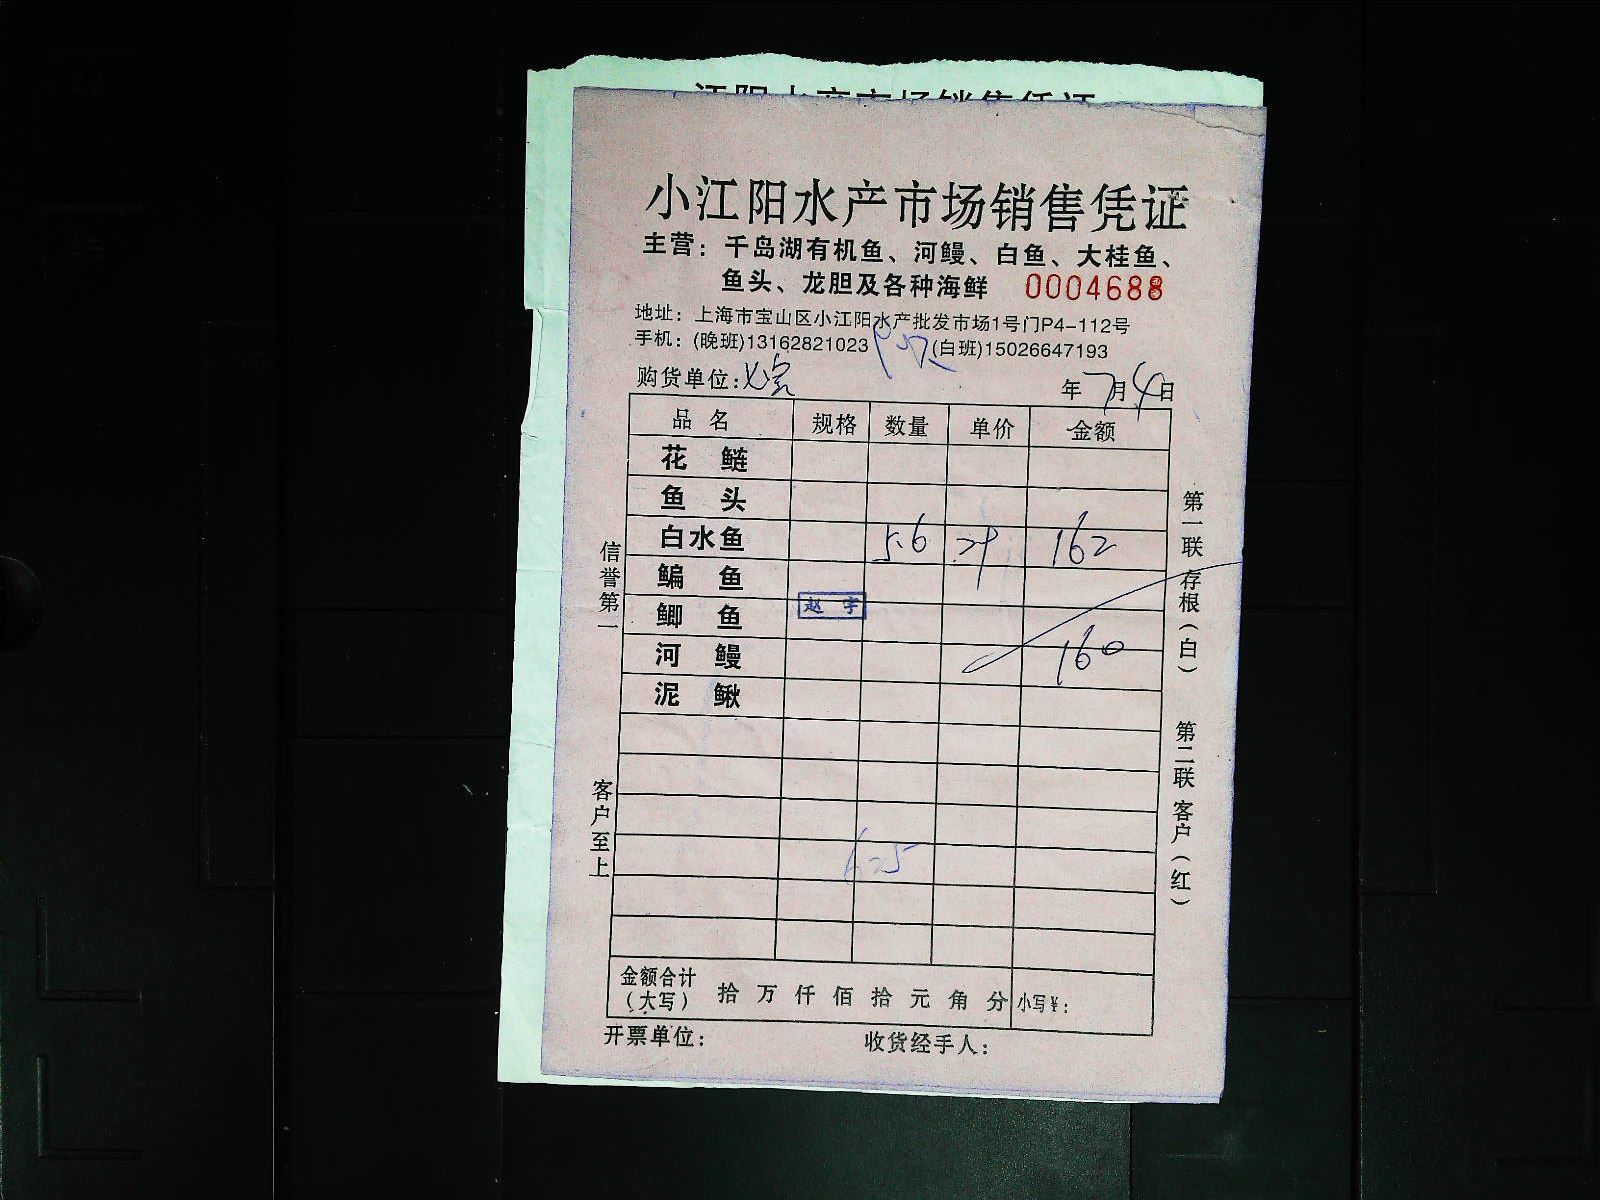 小江阳水产市场销售凭证
主营：千岛湖有机鱼、河鳗、白鱼、大桂鱼、
鱼头、龙胆及各种海鲜 0004688
地址：上海市宝山区小江阳水产批发市场1号门P4-112号
手机：(晚班)13162821023 (白班)15026647193
购货单位： 年7月4日
品名 规格 数量 单价 金额
花鲢
鱼头
白水鱼 5.6 29 162
鳊鱼
鲫鱼 赵宇
河鳗 160
泥鳅
625
金额合计（大写） 拾万仟佰拾元角分 小写¥：
开票单位： 收货经手人：
信誉第一
客户至上
第一联 存根（白）
第二联 客户（红）